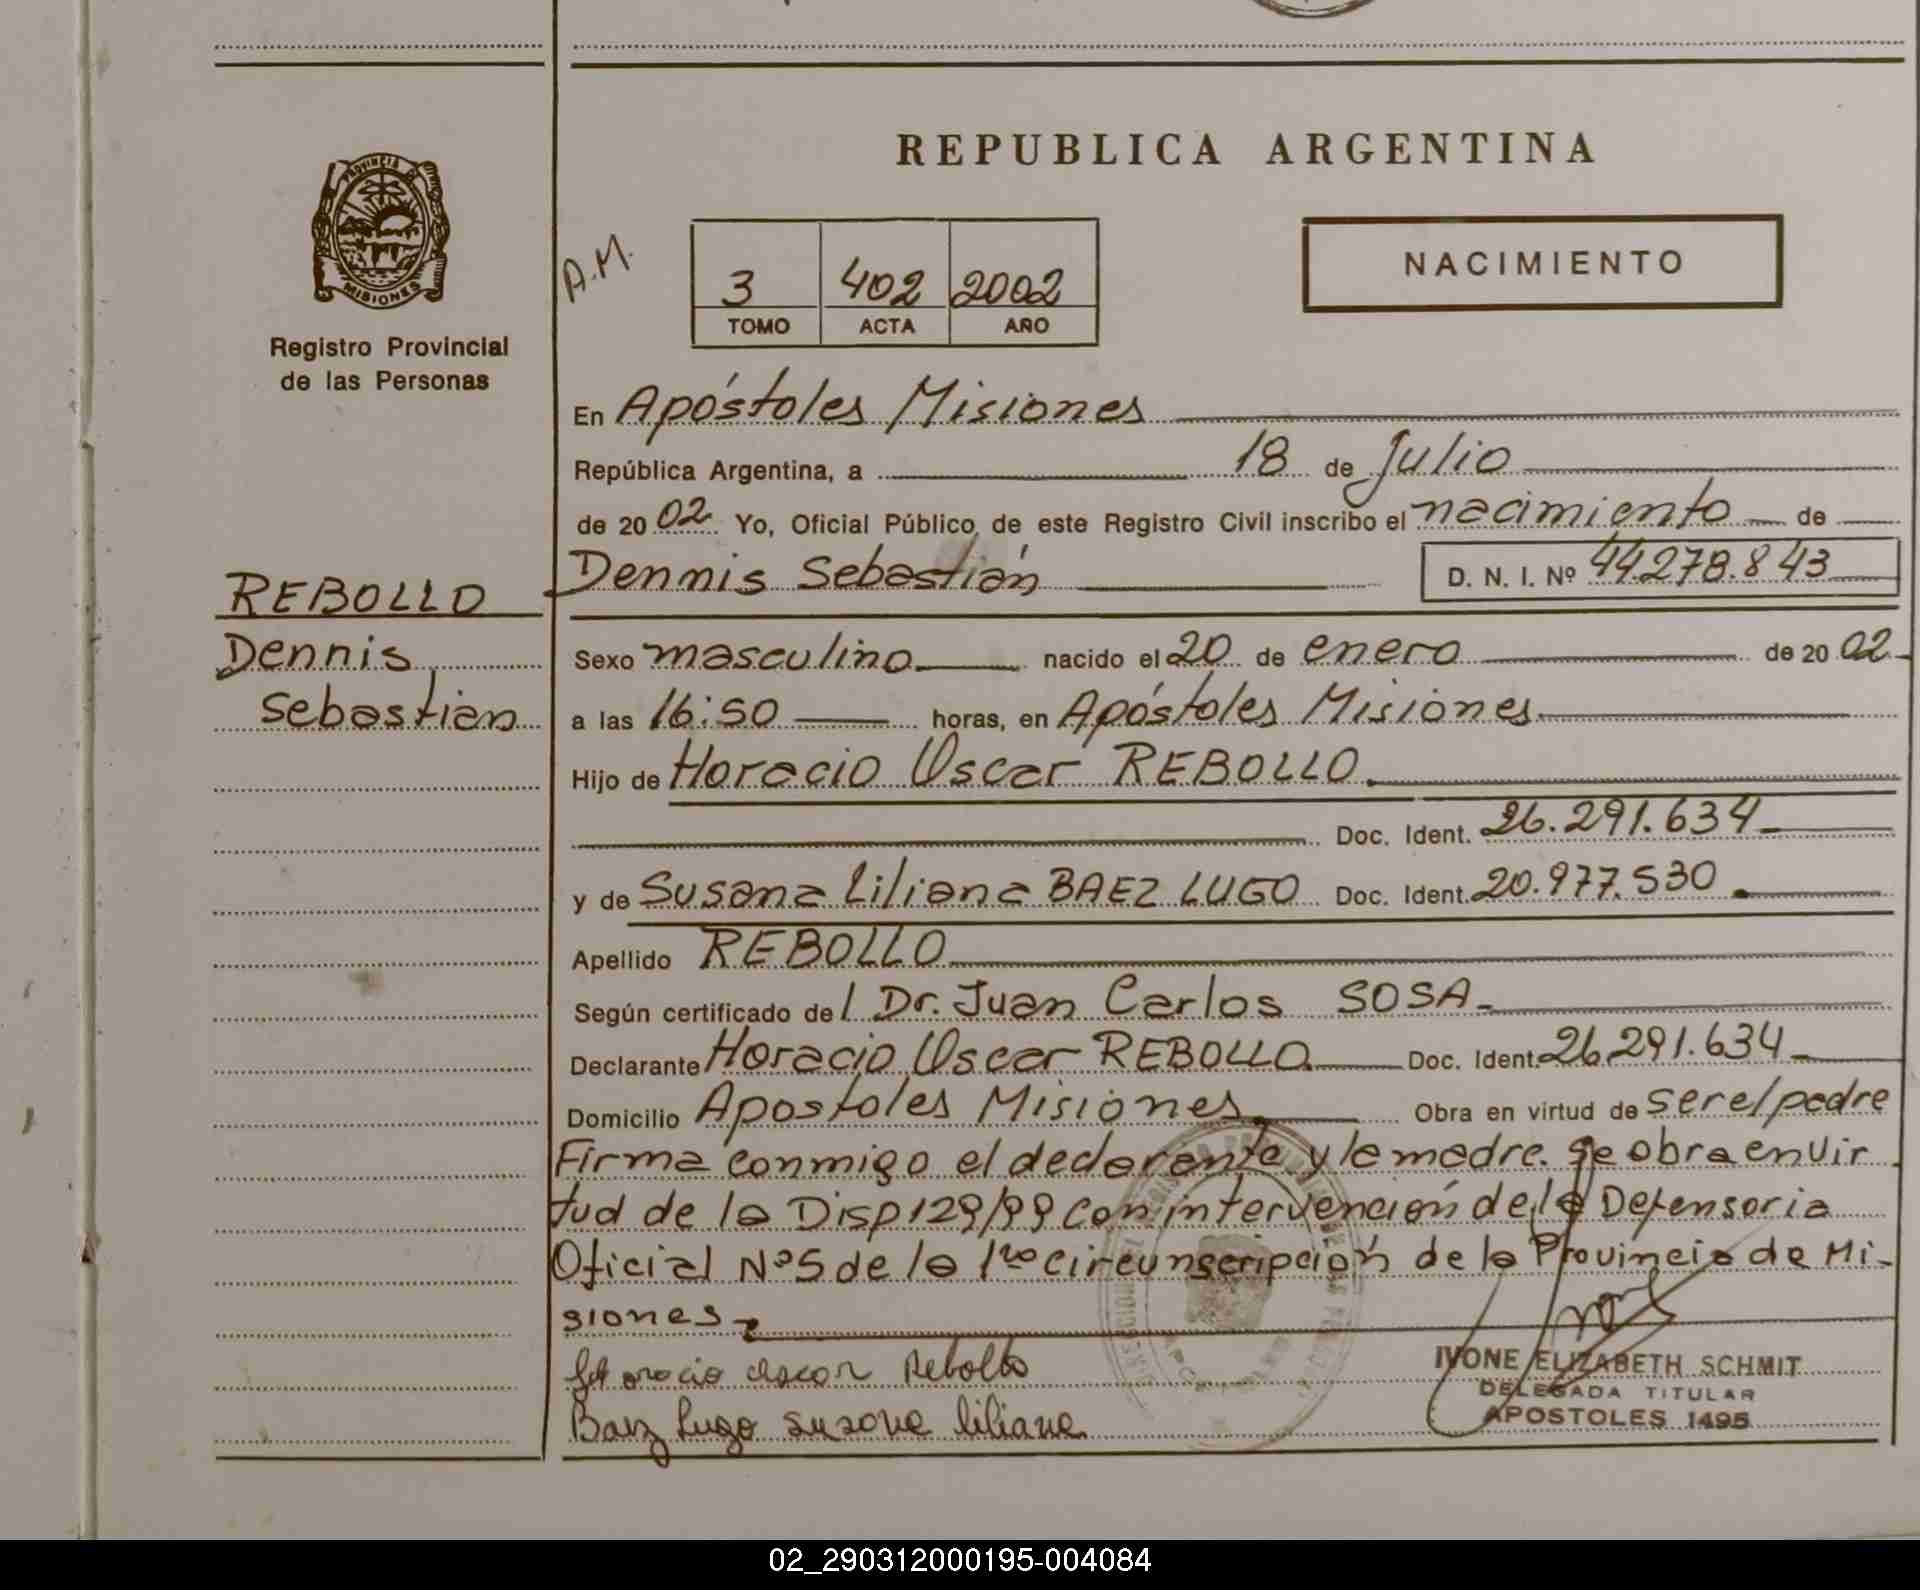 REPUBLICA ARGENTINA
PROVINCIA D
MISIONES
Registro Provincial
de las Personas
A.M.
3 402 2002
TOMO ACTA AÑO
NACIMIENTO
En Apóstoles Misiones
República Argentina, a 18 de Julio
de 20 02 Yo, Oficial Público, de este Registro Civil inscribo el nacimiento de
Dennis Sebastián D. N. I. Nº 44.278.843
REBOLLO
Dennis
Sebastian
Sexo masculino nacido el 20 de enero de 20 02
a las 16:50 horas, en Apóstoles Misiones.
Hijo de Horacio Oscar REBOLLO.
Doc. Ident. 26.291.634
y de Susana Liliana BAEZ LUGO Doc. Ident. 20.977.530.
Apellido REBOLLO
Según certificado de l Dr. Juan Carlos SOSA
Declarante Horacio Oscar REBOLLO. Doc. Ident. 26.291.634
Domicilio Apostoles Misiones. Obra en virtud de ser el padre
Firma conmigo el declarante y la madre. Se obra en vir
tud de la Disp 129/99 con intervención de la Defensoria
Oficial Nº 5 de la 1ra circunscripción de la Provincia de Mi-
siones.
Horacio Oscar Rebollo
Baez Lugo Susana Liliana
IVONE ELIZABETH SCHMIT
DELEGADA TITULAR
APOSTOLES 1495
02_290312000195-004084